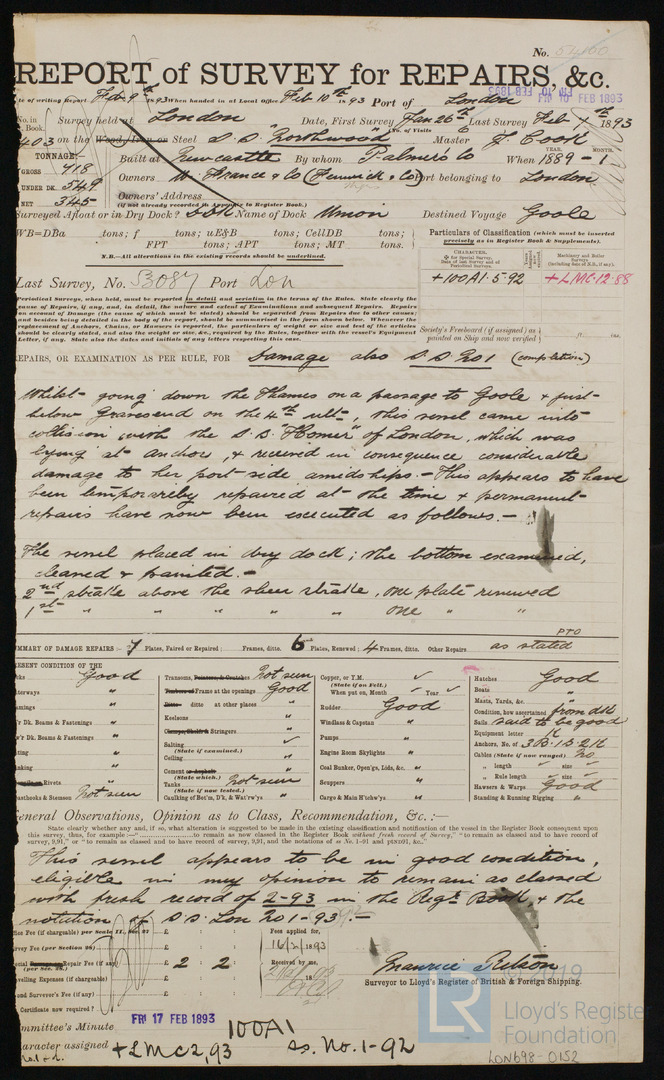 No. 54160
REPORT of SURVEY for REPAIRS, &c.
FRI 10 FEB 1893
te of writing Report Feb. 9th 1893 When handed in at Local Office Feb 10th 1893 Port of London
No. in Book. Survey held at London Date, First Survey Jan 26th Last Survey Feb 7th 1893
(No. of Visits 6
403 on the Wood, Iron or Steel S.S. "Northwood" Master J. Cook
TONNAGE:— Built at Newcastle By whom Palmers Co When 1889 - 1
YEAR. MONTH.
GROSS 918
UNDER DK. 549
NET 345
Owners W. France & Co (Fenwick & Co) Port belonging to London
Owners' Address
(if not already recorded in Appendix to Register Book.)
Surveyed Afloat or in Dry Dock? DDK Name of Dock Union Destined Voyage Goole
WB=DBa tons; f tons; uE&B tons; CellDB tons;
FPT tons; APT tons; MT tons.
N.B.—All alterations in the existing records should be underlined.
Particulars of Classification (which must be inserted
precisely as in Register Book & Supplements).
CHARACTER.
Machinery and Boiler
Surveys
+100A1-5-92 +LMC-12-88
Last Survey, No. 53087 Port Lon
Periodical Surveys, when held, must be reported in detail and seriatim in the terms of the Rules. State clearly the
cause of Repairs, if any, and, in detail, the nature and extent of Examinations and subsequent Repairs. Repairs
on account of Damage (the cause of which must be stated) should be separated from Repairs due to other causes;
and besides being detailed in the body of the report, should be summarised in the form shewn below. Whenever the
replacement of Anchors, Chains, or Hawsers is reported, the particulars of weight or size and test of the articles
should be clearly stated, and also the weight or size, &c., required by the Rules, together with the vessel's Equipment
Letter, if any. State also the dates and initials of any letters respecting this case.
Society's Freeboard (if assigned) as
painted on Ship and now verified
REPAIRS, OR EXAMINATION AS PER RULE, FOR Damage also S.S. No 1 (completion)
Whilst going down the Thames on a passage to Goole & just
below Gravesend on the 4th ult-, this vessel came into
collision with the S.S. "Homer" of London, which was
lying at anchor, & received in consequence considerable
damage to her port side amidships.- This appears to have
been temporareby repaired at the time & permanent
repairs have now been executed as follows.-
The vessel placed in dry dock; the bottom examined,
cleaned & painted.-
2nd strake above the sheer strake, one plate renewed
1st " " " " " one " "
PTO
SUMMARY OF DAMAGE REPAIRS:- 7 Plates, Faired or Repaired; Frames, ditto. 6 Plates, Renewed; 4 Frames, ditto. Other Repairs as stated
PRESENT CONDITION OF THE
Good
terways "
amings "
r Dk. Beams & Fastenings "
w'r Dk. Beams & Fastenings "
Rivets "
Breasthooks & Stemson Not seen
Transoms, Pointers & Crutches Not seen
Timbers of Frame at the openings Good
Ditto ditto at other places "
Keelsons "
Clamps, Shelfs & Stringers "
Salting ✓
(State if examined.)
Ceiling "
Cement or Asphalt "
(State which.)
Tanks Not seen
(State if now tested.)
Caulking of Bot'm, D'k, & Wat'rw'ys "
Copper, or Y.M. ✓
(State if on Felt.)
When put on, Month ✓ Year ✓
Rudder Good
Windlass & Capstan "
Pumps "
Engine Room Skylights "
Coal Bunker, Open'gs, Lids, &c. "
Scuppers "
Cargo & Main H'tchw'ys "
Hatches Good
Boats "
Masts, Yards, &c. "
Condition, how ascertained from dk
Sails said to be good
Equipment letter
Anchors, No. of 3B.1S.2K
Cables (State if now ranged) No
" length ✓ size ✓
" Rule length ✓ size ✓
Hawsers & Warps Good
Standing & Running Rigging "
General Observations, Opinion as to Class, Recommendation, &c. :—
State clearly whether any, and if so, what alteration is suggested to be made in the existing classification and notification of the vessel in the Register Book consequent upon
this survey, thus, for example:—" to remain as now classed in the Register Book without fresh record of Survey," "to remain as classed and to have record of
survey, 9,91," or "to remain classed and to have record of survey, 9,91, and the notations of ss No. 1-91 and ptND91, &c."
This vessel appears to be in good condition,
eligible in my opinion to remain as classed
with fresh record of 2-93 in the Regr. Book & the
notation of S.S. Lon No 1-93.-
Office Fee (if chargeable) per Scale II., Sec. 27 £ : :
Survey Fee (per Section 28) £ : :
Special Repair Fee (if any) £ 2 : 2 :
(per Sec. 28.)
Travelling Expenses (if chargeable) £ : :
2nd Surveyor's Fee (if any) £ : :
Certificate now required?
Fees applied for,
16/2/1893
Received by me,
Maurice Retson
Surveyor to Lloyd's Register of British & Foreign Shipping.
Committee's Minute FRI 17 FEB 1893
Character assigned 100A1
+LMC 2,93 ss. No. 1-92
2019
LR
Lloyd's Register
Foundation
LON698-0152